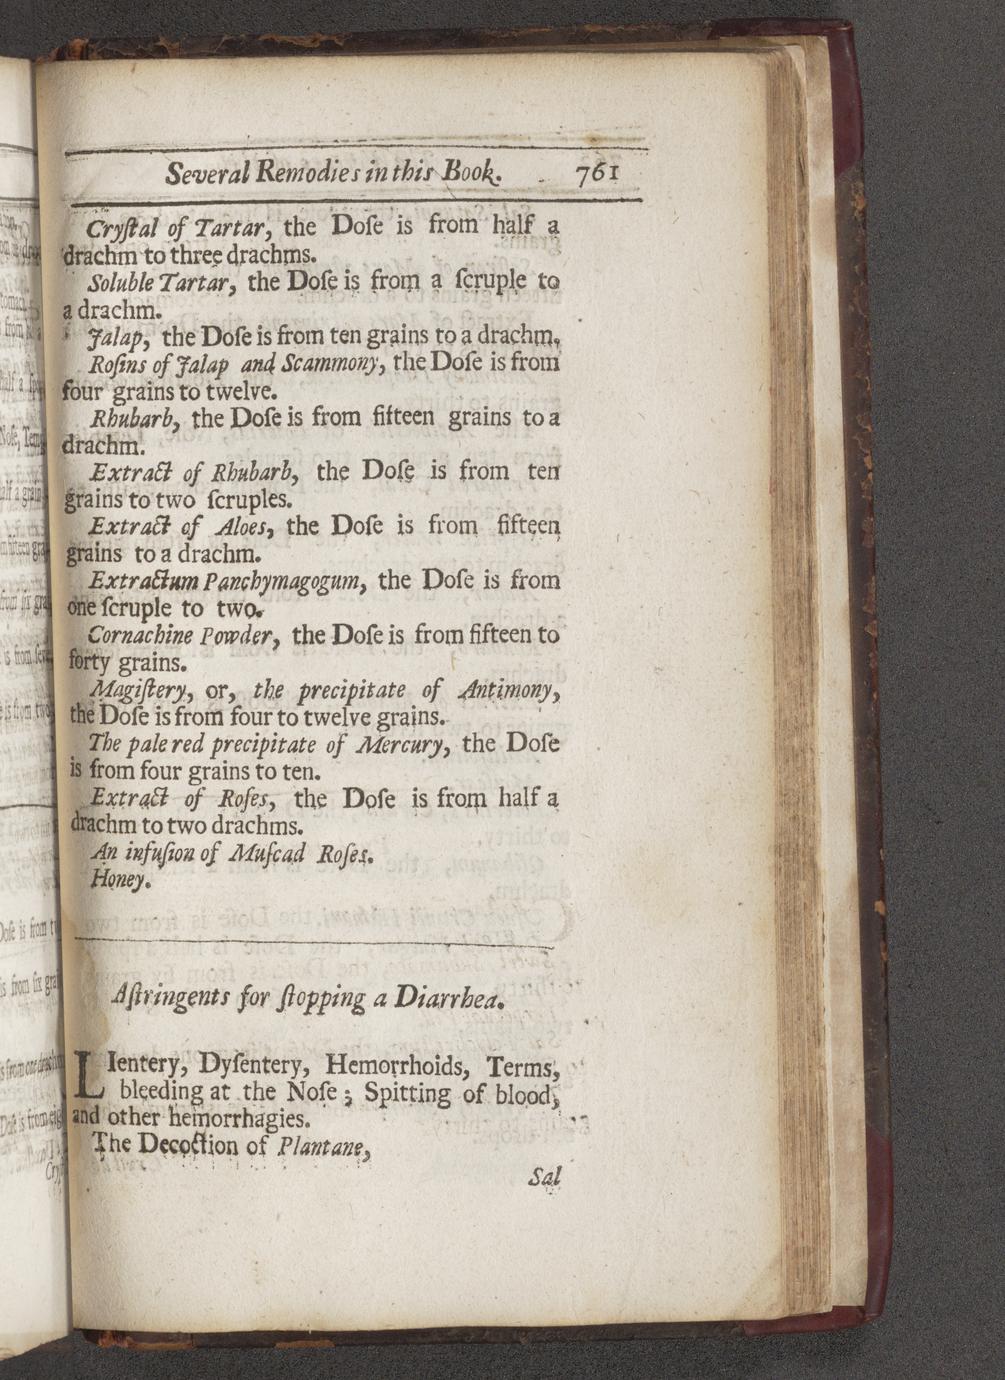 Several Remodies in this Book. 761
Cryſtal of Tartar, the Doſe is from half a
drachm to three drachms.
Soluble Tartar, the Doſe is from a ſcruple to
a drachm.
Jalap, the Doſe is from ten grains to a drachm,
Roſins of Jalap and Scammony, the Doſe is from
four grains to twelve.
Rhubarb, the Doſe is from fifteen grains to a
drachm.
Extract of Rhubarb, the Doſe is from ten
grains to two ſcruples.
Extract of Aloes, the Doſe is from fifteen
grains to a drachm.
Extractum Panchymagogum, the Doſe is from
one ſcruple to two.
Cornachine Powder, the Doſe is from fifteen to
forty grains.
Magiſtery, or, the precipitate of Antimony,
the Doſe is from four to twelve grains.
The pale red precipitate of Mercury, the Doſe
is from four grains to ten.
Extract of Roſes, the Doſe is from half a
drachm to two drachms.
An infuſion of Muſcad Roſes.
Honey.
Aſtringents for ſtopping a Diarrhea.
LIentery, Dyſentery, Hemorrhoids, Terms,
bleeding at the Noſe; Spitting of blood,
and other hemorrhagies.
The Decoction of Plantane,
Sal